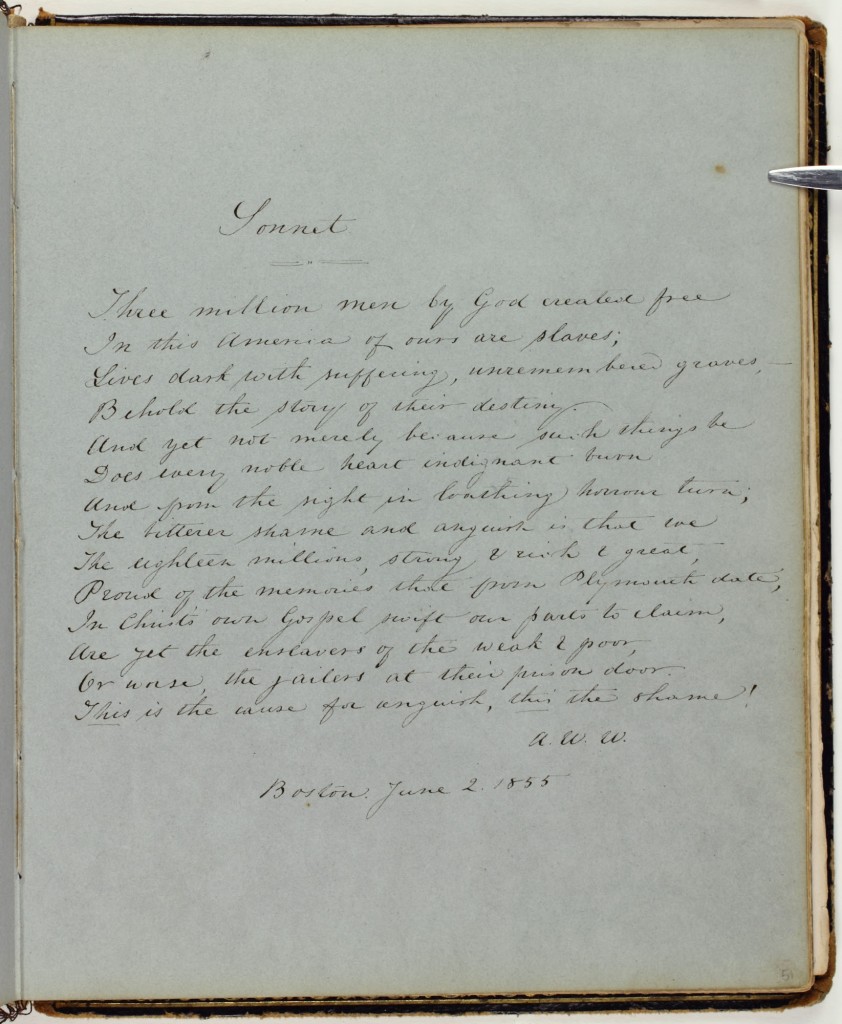 Sonnet
Three million men by God created free
In this America of ours are slaves;
Lives dark with suffering, unremembered graves,—
Behold the story of their destiny.
And yet not merely because such things be
Does every noble heart indignant burn
And from the sight in loathing horrour turn;
The bitterer shame and anguish is, that we
The eighteen millions, strong & rich & great,
Proud of the memories that from Plymouth date,
In Christ's own Gospel swift our parts to claim,
Are yet the enslavers of the weak & poor,
Or worse, the jailers at their prison door.
This is the cause for anguish, this the shame!
A. W. W.
Boston. June 2. 1855